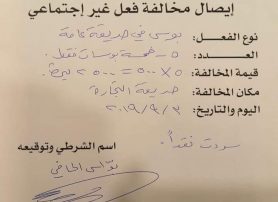 إيصال مخالفة فعل غير إجتماعي
نوع الفعل: بوسي في حديقة عامة
العدد: ٥ خمسة بوسات فقط.
قيمة المخالفة: ٥ × ٥٠٠ = ٢٥٠٠ ليرة
مكان المخالفة: حديقة التجارة
اليوم والتاريخ: ٢٠١٩/٩/٣
سددت نقداً.
اسم الشرطي وتوقيعه
نواس الحافي